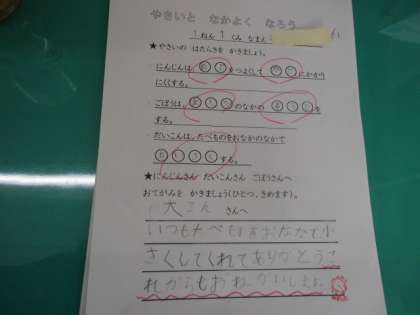 やさいと なかよく なろう
1ねん 1くみ なまえ
★やさいの はたらきを かきましょう。
・にんじんは、をつよくして にかかり
にくくする。
・ごぼうは、のなかの を
する。
・だいこんは、たべものをおなかのなかで
する。
★にんじんさん だいこんさん ごぼうさんへ
おてがみを かきましょう(ひとつ、きめます)。
大こん さんへ
いつもたべものをおなかで小
さくしてくれてありがとうこ
れからもおねがいします。